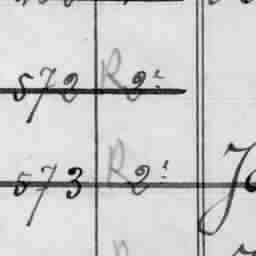 572 R 2:
573 R 2: